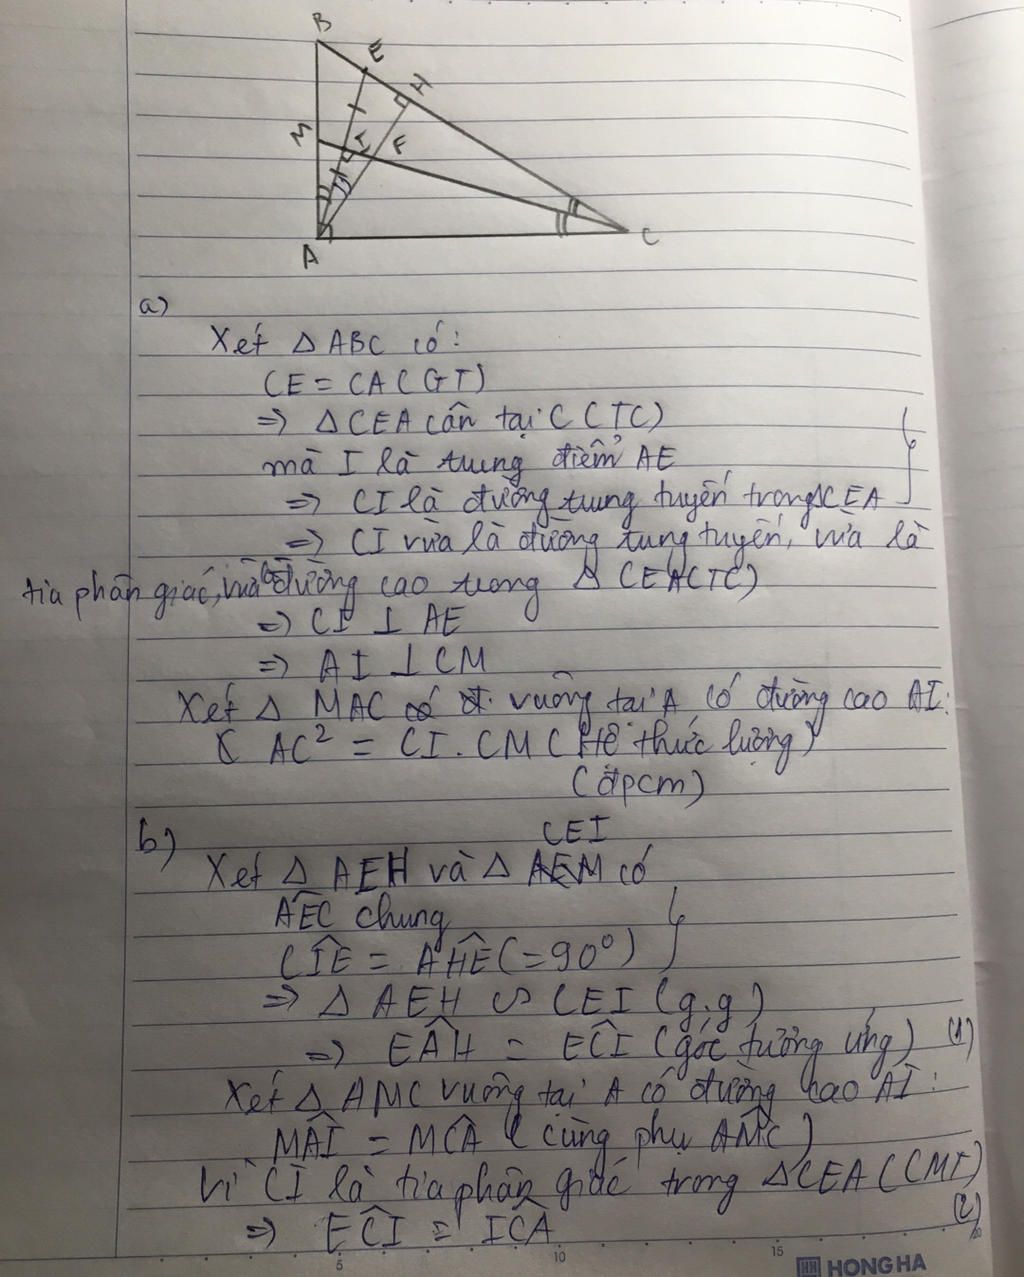 B
E
H
M
I
F
A
C
a)
Xét Δ ABC có:
CE = CA (GT)
=> Δ CEA cân tại C (TC)
mà I là trung điểm AE
=> CI là đường trung tuyến trong Δ CEA
=> CI vừa là đường trung tuyến, vừa là
tia phân giác, vừa là đường cao trong Δ CEA (TC)
=> CI ⊥ AE
=> AI ⊥ CM
Xét Δ MAC vuông tại A có đường cao AI:
AC² = CI . CM (Hệ thức lượng)
(đpcm)
b)
CEI
Xét Δ AEH và Δ AEM có
AÊC chung
CÎE = AĤE (= 90°)
=> Δ AEH ∽ CEI (g.g)
=> EÂH = EĈI (góc tương ứng) (1)
Xét Δ AMC vuông tại A có đường cao AI:
MÂI = MĈA (cùng phụ AM̂C)
Vì CI là tia phân giác trong Δ CEA (CMT)
=> EĈI = IĈA (2)
5 10 15 20
HH HONG HA